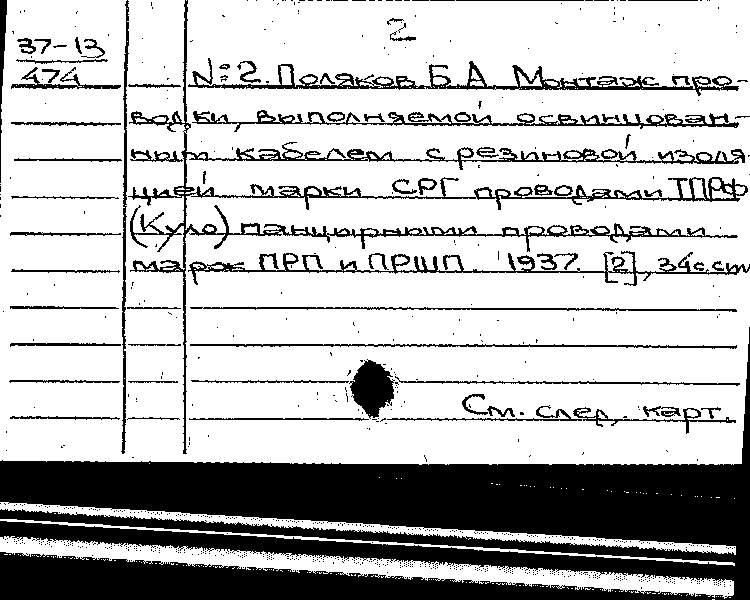 2
37-13
474
№2. Поляков Б.А Монтаж про-
водки, выполняемой освинцован-
ным кабелем с резиновой изоля-
цией марки СРГ проводами ТПРФ
(Куло) панцырными проводами
марок ПРП и ПРШП. 1937. [2], 34с. сm
См. след. карт.